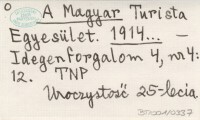 A Magyar Turista
Egyesület. 1914... —
Idegenforgalom 4, nr 4:
12. TNP
Uroczystość 25-lecia